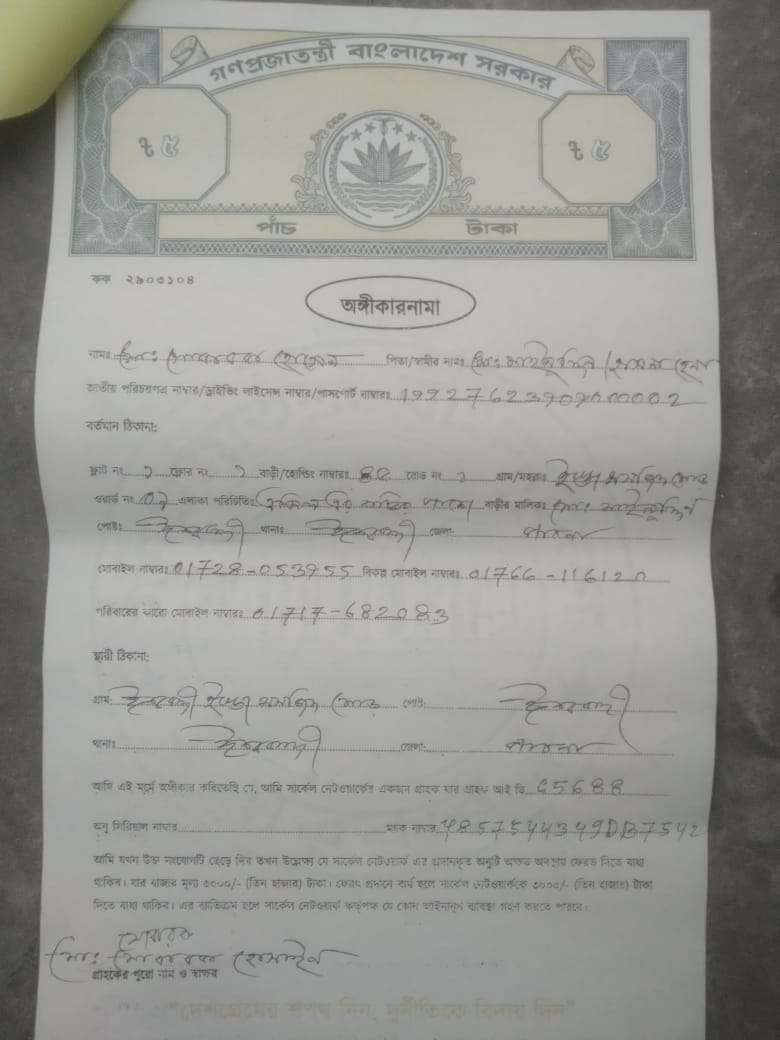 গণপ্রজাতন্ত্রী বাংলাদেশ সরকার
৳ ৫ ৳ ৫
পাঁচ টাকা
কক ২৯০৩১০৪
অঙ্গীকারনামা
নামঃ মোঃ মোবারক হোসেন পিতা/স্বামীর নামঃ মোঃ
জাতীয় পরিচয়পত্র নাম্বার/ড্রাইভিং লাইসেন্স নাম্বার/পাসপোর্ট নাম্বারঃ
বর্তমান ঠিকানা:
ফ্লাট নং ফ্লোর নং বাড়ী/হোল্ডিং নাম্বারঃ রোড নং গ্রাম/মহল্লাঃ মসজিদ রোড
ওয়ার্ড নং এলাকা পরিচিতিঃ পাশে বাড়ীর মালিকঃ মোঃ
পোষ্টঃ ঈশ্বরদী থানাঃ ঈশ্বরদী জেলাঃ পাবনা
মোবাইল নাম্বারঃ 01728-053955 বিকল্প মোবাইল নাম্বারঃ 01766-116120
পরিবারের কারো মোবাইল নাম্বারঃ 01717-682083
স্থায়ী ঠিকানা:
গ্রাম: ঈশ্বরদী মসজিদ রোড পোষ্ট: ঈশ্বরদী
থানাঃ ঈশ্বরদী জেলা: পাবনা
আমি এই মর্মে অঙ্গীকার করিতেছি যে, আমি সার্কেল নেটওয়ার্কের একজন গ্রাহক যার গ্রাহক আই ডি 65688
অনু সিরিয়াল নাম্বার ম্যাক নাম্বার 4857544349DB7542
আমি যখন উক্ত সংযোগটি ছেড়ে দিব তখন উল্লেখ্য যে সার্কেল নেটওয়ার্ক এর প্রদানকৃত অনুটি অক্ষত অবস্থায় ফেরত দিতে বাধ্য
থাকিব। যার বাজার মূল্য ৩০০০/- (তিন হাজার) টাকা। ফেরৎ প্রদানে ব্যর্থ হলে সার্কেল নেটওয়ার্ককে ৩০০০/- (তিন হাজার) টাকা
দিতে বাধ্য থাকিব। এর ব্যতিক্রম হলে সার্কেল নেটওয়ার্ক কর্তৃপক্ষ যে কোন আইনানুগ ব্যবস্থা গ্রহন করতে পারবে।
মোবারক
মোঃ মোবারক হোসাইন
গ্রাহকের পুরো নাম ও স্বাক্ষর
"দেশপ্রেমের শপথ নিন, দুর্নীতিকে বিদায় দিন"